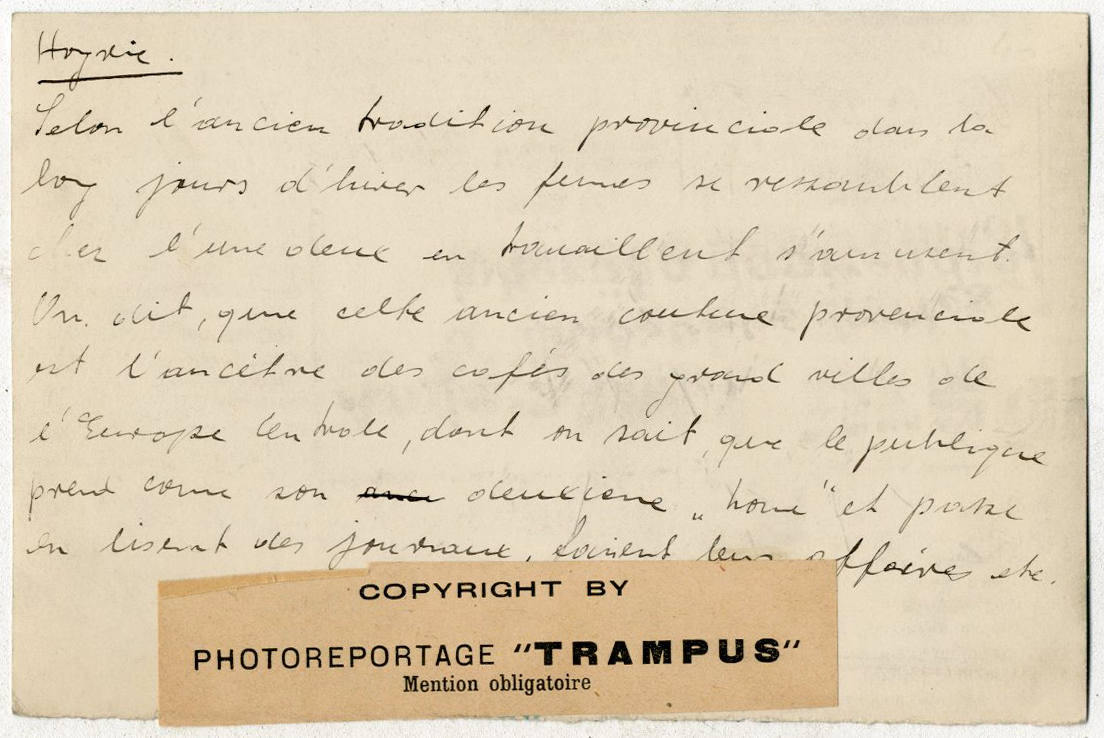 Hogrie.
Selon l'ancien tradition provinciale dans la
long jours d'hiver les femmes se ressemblent
chez l'une deux en travaillent s'amusent.
On dit, que cette ancien coutume provenciale
est l'ancêtre des cafés des grand villes de
l'Europe Centrale, dont on sait, que le publique
prend come son deuxieme „home" et passe
en lisent des journaux, faisent leur affaires etc.
COPYRIGHT BY
PHOTOREPORTAGE "TRAMPUS"
Mention obligatoire